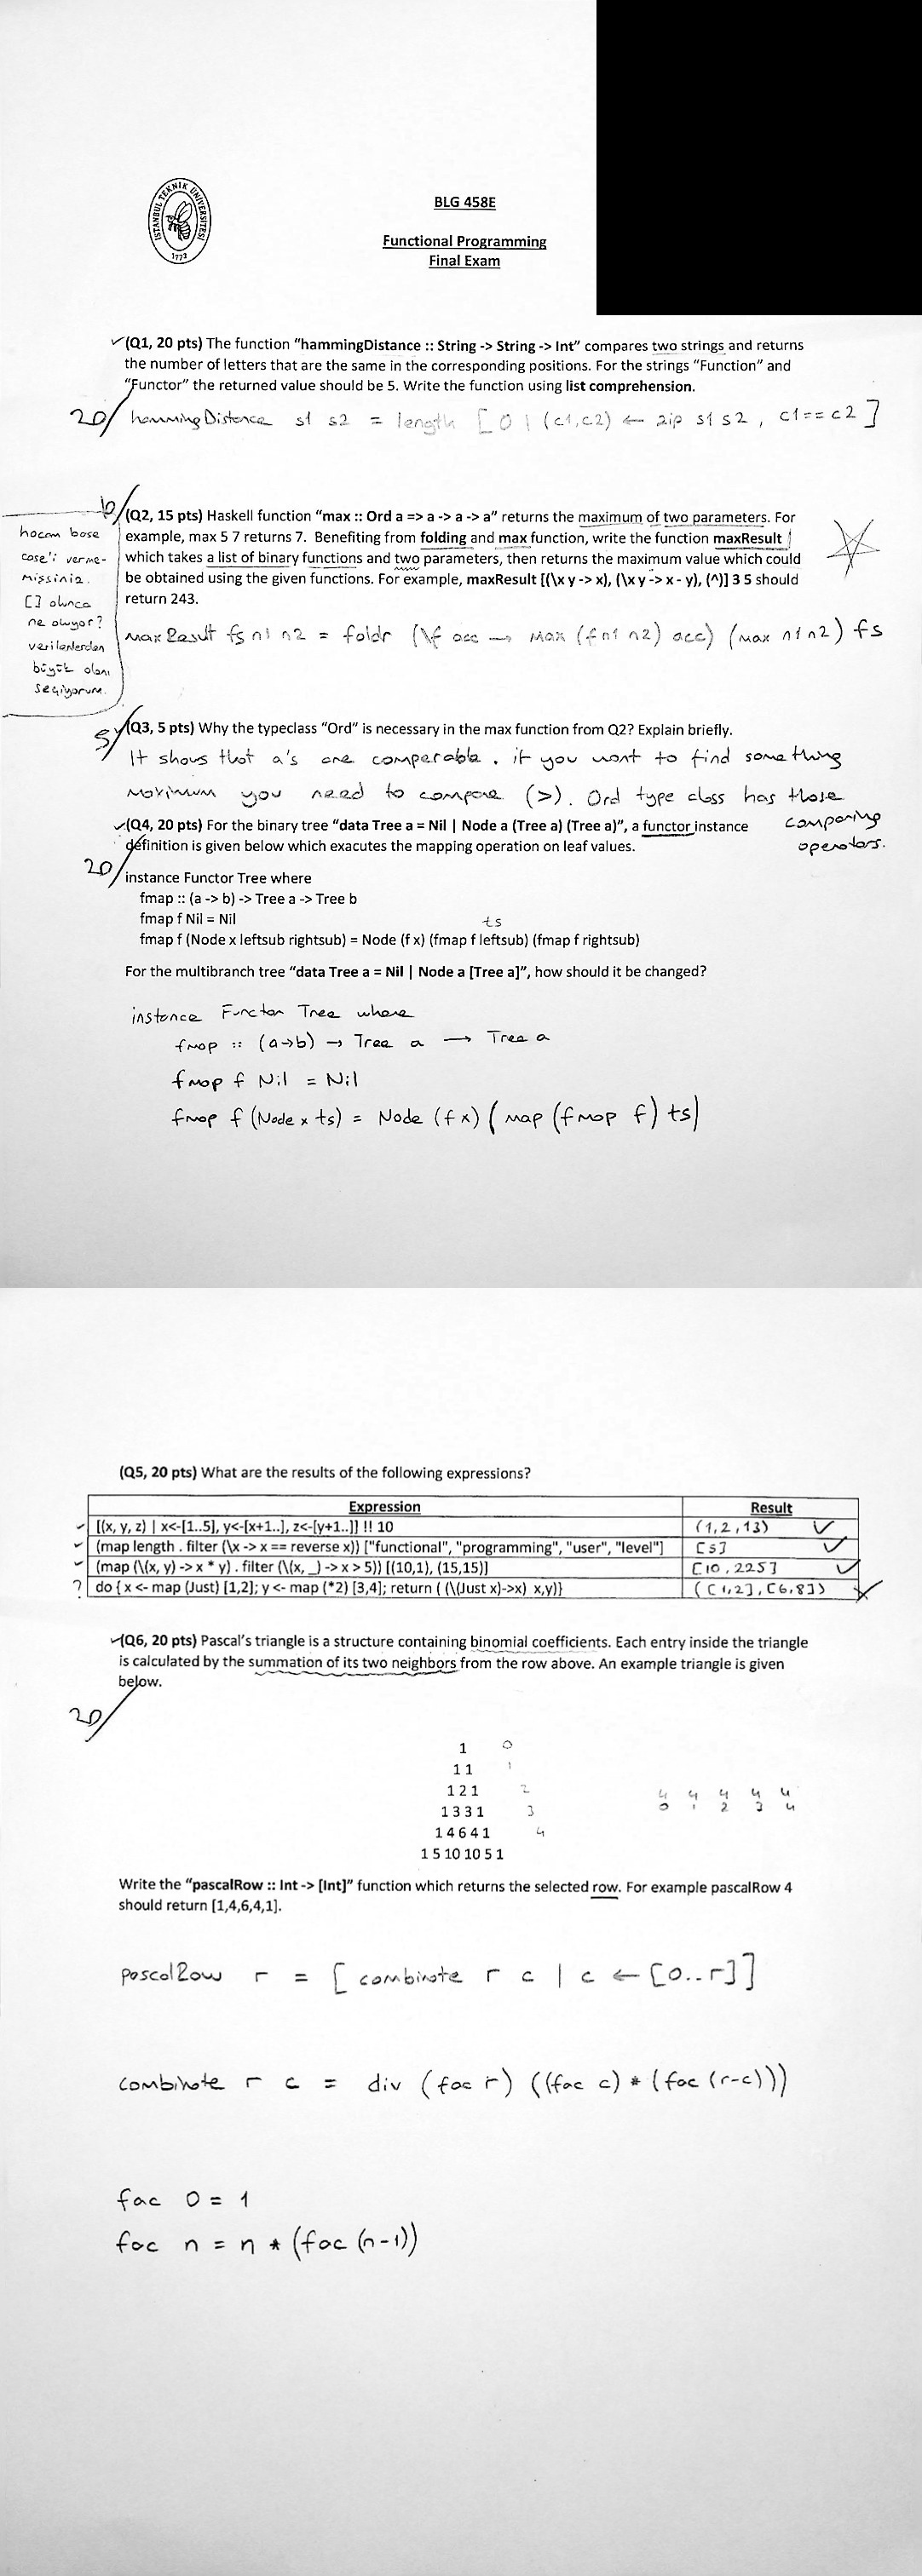 ISTANBUL TEKNIK UNIVERSITESI
1773
BLG 458E
Functional Programming
Final Exam
(Q1, 20 pts) The function “hammingDistance :: String -> String -> Int” compares two strings and returns
the number of letters that are the same in the corresponding positions. For the strings “Function” and
“Functor” the returned value should be 5. Write the function using list comprehension.
20/ hammingDistance s1 s2 = length [ 0 | (c1,c2) ← zip s1 s2 , c1==c2 ]
(Q2, 15 pts) Haskell function “max :: Ord a => a -> a -> a” returns the maximum of two parameters. For
example, max 5 7 returns 7. Benefiting from folding and max function, write the function maxResult
which takes a list of binary functions and two parameters, then returns the maximum value which could
be obtained using the given functions. For example, maxResult [(\x y -> x), (\x y -> x - y), (^)] 3 5 should
return 243.
hocam bose
case'i verme-
missiniz.
[] olunca
ne oluyor?
verilenlerden
büyük olanı
seçiyorum.
maxResult fs n1 n2 = foldr (\f acc → max (f n1 n2) acc) (max n1 n2) fs
5/ (Q3, 5 pts) Why the typeclass “Ord” is necessary in the max function from Q2? Explain briefly.
It shows that a's are comparable. if you want to find something
maximum you need to compare (>). Ord type class has those
comparing
operators.
(Q4, 20 pts) For the binary tree “data Tree a = Nil | Node a (Tree a) (Tree a)”, a functor instance
definition is given below which exacutes the mapping operation on leaf values.
20/
instance Functor Tree where
fmap :: (a -> b) -> Tree a -> Tree b
fmap f Nil = Nil
ts
fmap f (Node x leftsub rightsub) = Node (f x) (fmap f leftsub) (fmap f rightsub)
For the multibranch tree “data Tree a = Nil | Node a [Tree a]”, how should it be changed?
instance Functor Tree where
fmap :: (a→b) → Tree a → Tree a
fmap f Nil = Nil
fmap f (Node x ts) = Node (f x) ( map (fmap f) ts)
(Q5, 20 pts) What are the results of the following expressions?
Expression Result
[(x, y, z) | x<-[1..5], y<-[x+1..], z<-[y+1..]] !! 10 (1,2,13)
(map length . filter (\x -> x == reverse x)) ["functional", "programming", "user", "level"] [5]
(map (\(x, y) -> x * y) . filter (\(x, _) -> x > 5)) [(10,1), (15,15)] [10, 225]
? do { x <- map (Just) [1,2]; y <- map (*2) [3,4]; return ( (\(Just x)->x) x,y)} ([1,2], [6,8])
(Q6, 20 pts) Pascal’s triangle is a structure containing binomial coefficients. Each entry inside the triangle
is calculated by the summation of its two neighbors from the row above. An example triangle is given
below.
20/
1 0
1 1 1
1 2 1 2
1 3 3 1 3
1 4 6 4 1 4
1 5 10 10 5 1
4 4 4 4 4
0 1 2 3 4
Write the “pascalRow :: Int -> [Int]” function which returns the selected row. For example pascalRow 4
should return [1,4,6,4,1].
pascalRow r = [ combinate r c | c ← [0..r] ]
combinate r c = div (fac r) ((fac c) * (fac (r-c)))
fac 0 = 1
fac n = n * (fac (n-1))